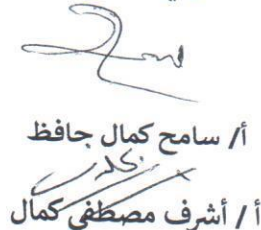 أ/ سامح كمال حافظ
أ / أشرف مصطفى كمال